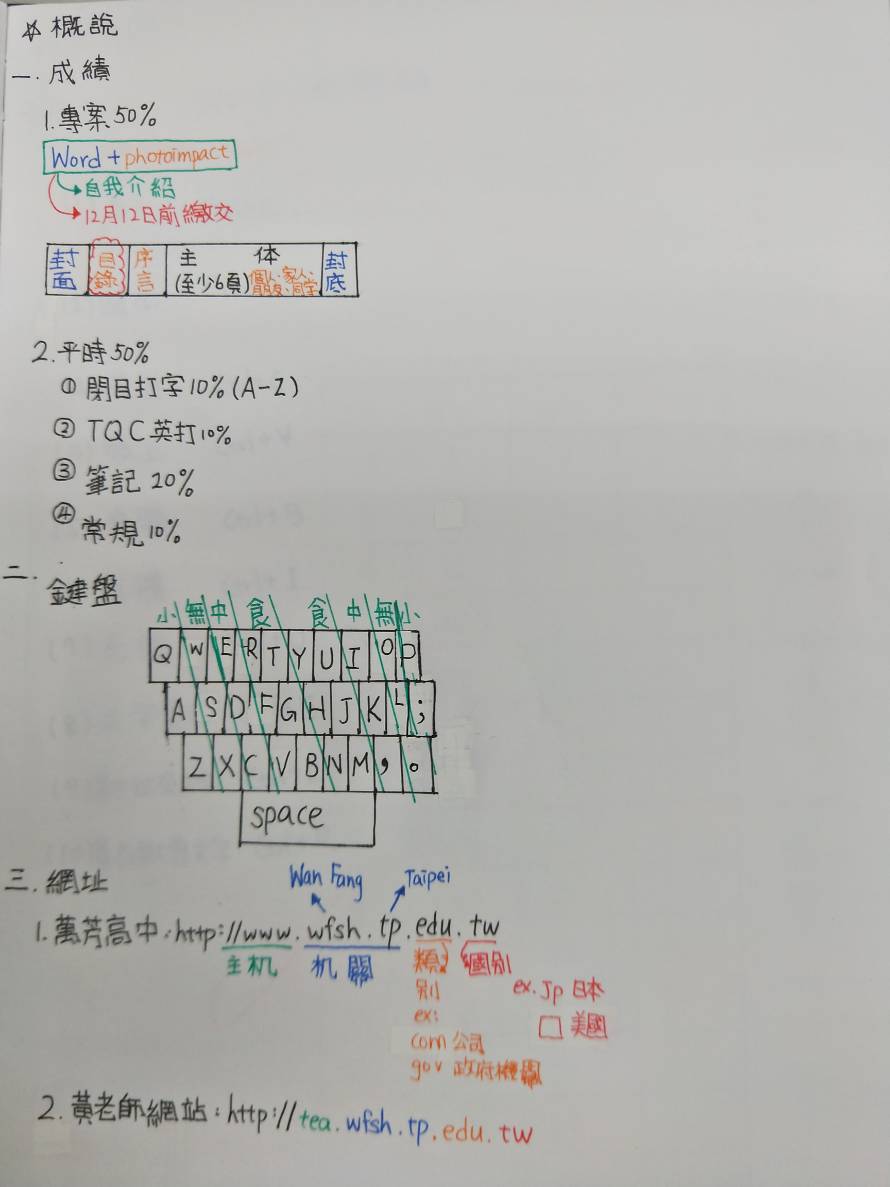 ☆ 概說
一. 成績
1. 專案 50%
Word + photoimpact
自我介紹
12月12日前繳交
封面 目錄 序言 主體 (至少6頁) 個人、家人、朋友、同學 封底
2. 平時 50%
① 閉目打字 10% (A-Z)
② TQC 英打 10%
③ 筆記 20%
④ 常規 10%
二. 鍵盤
小 無 中 食 食 中 無 小
Q W E R T Y U I O P
A S D F G H J K L ;
Z X C V B N M , 。
space
三. 網址
Wan Fang Taipei
1. 萬芳高中: http://www.wfsh.tp.edu.tw
主机 机關 類別 國別
ex. jp 日本
□ 美國
ex:
com 公司
gov 政府機關
2. 黃老師網站: http://tea.wfsh.tp.edu.tw